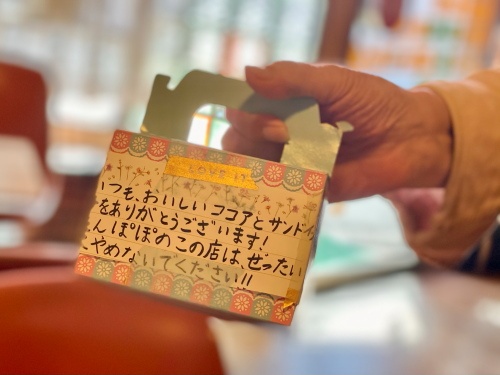 いつも、おいしいココアとサンド
をありがとうございます!
んぽぽのこの店は、ぜったい
やめないでください!!